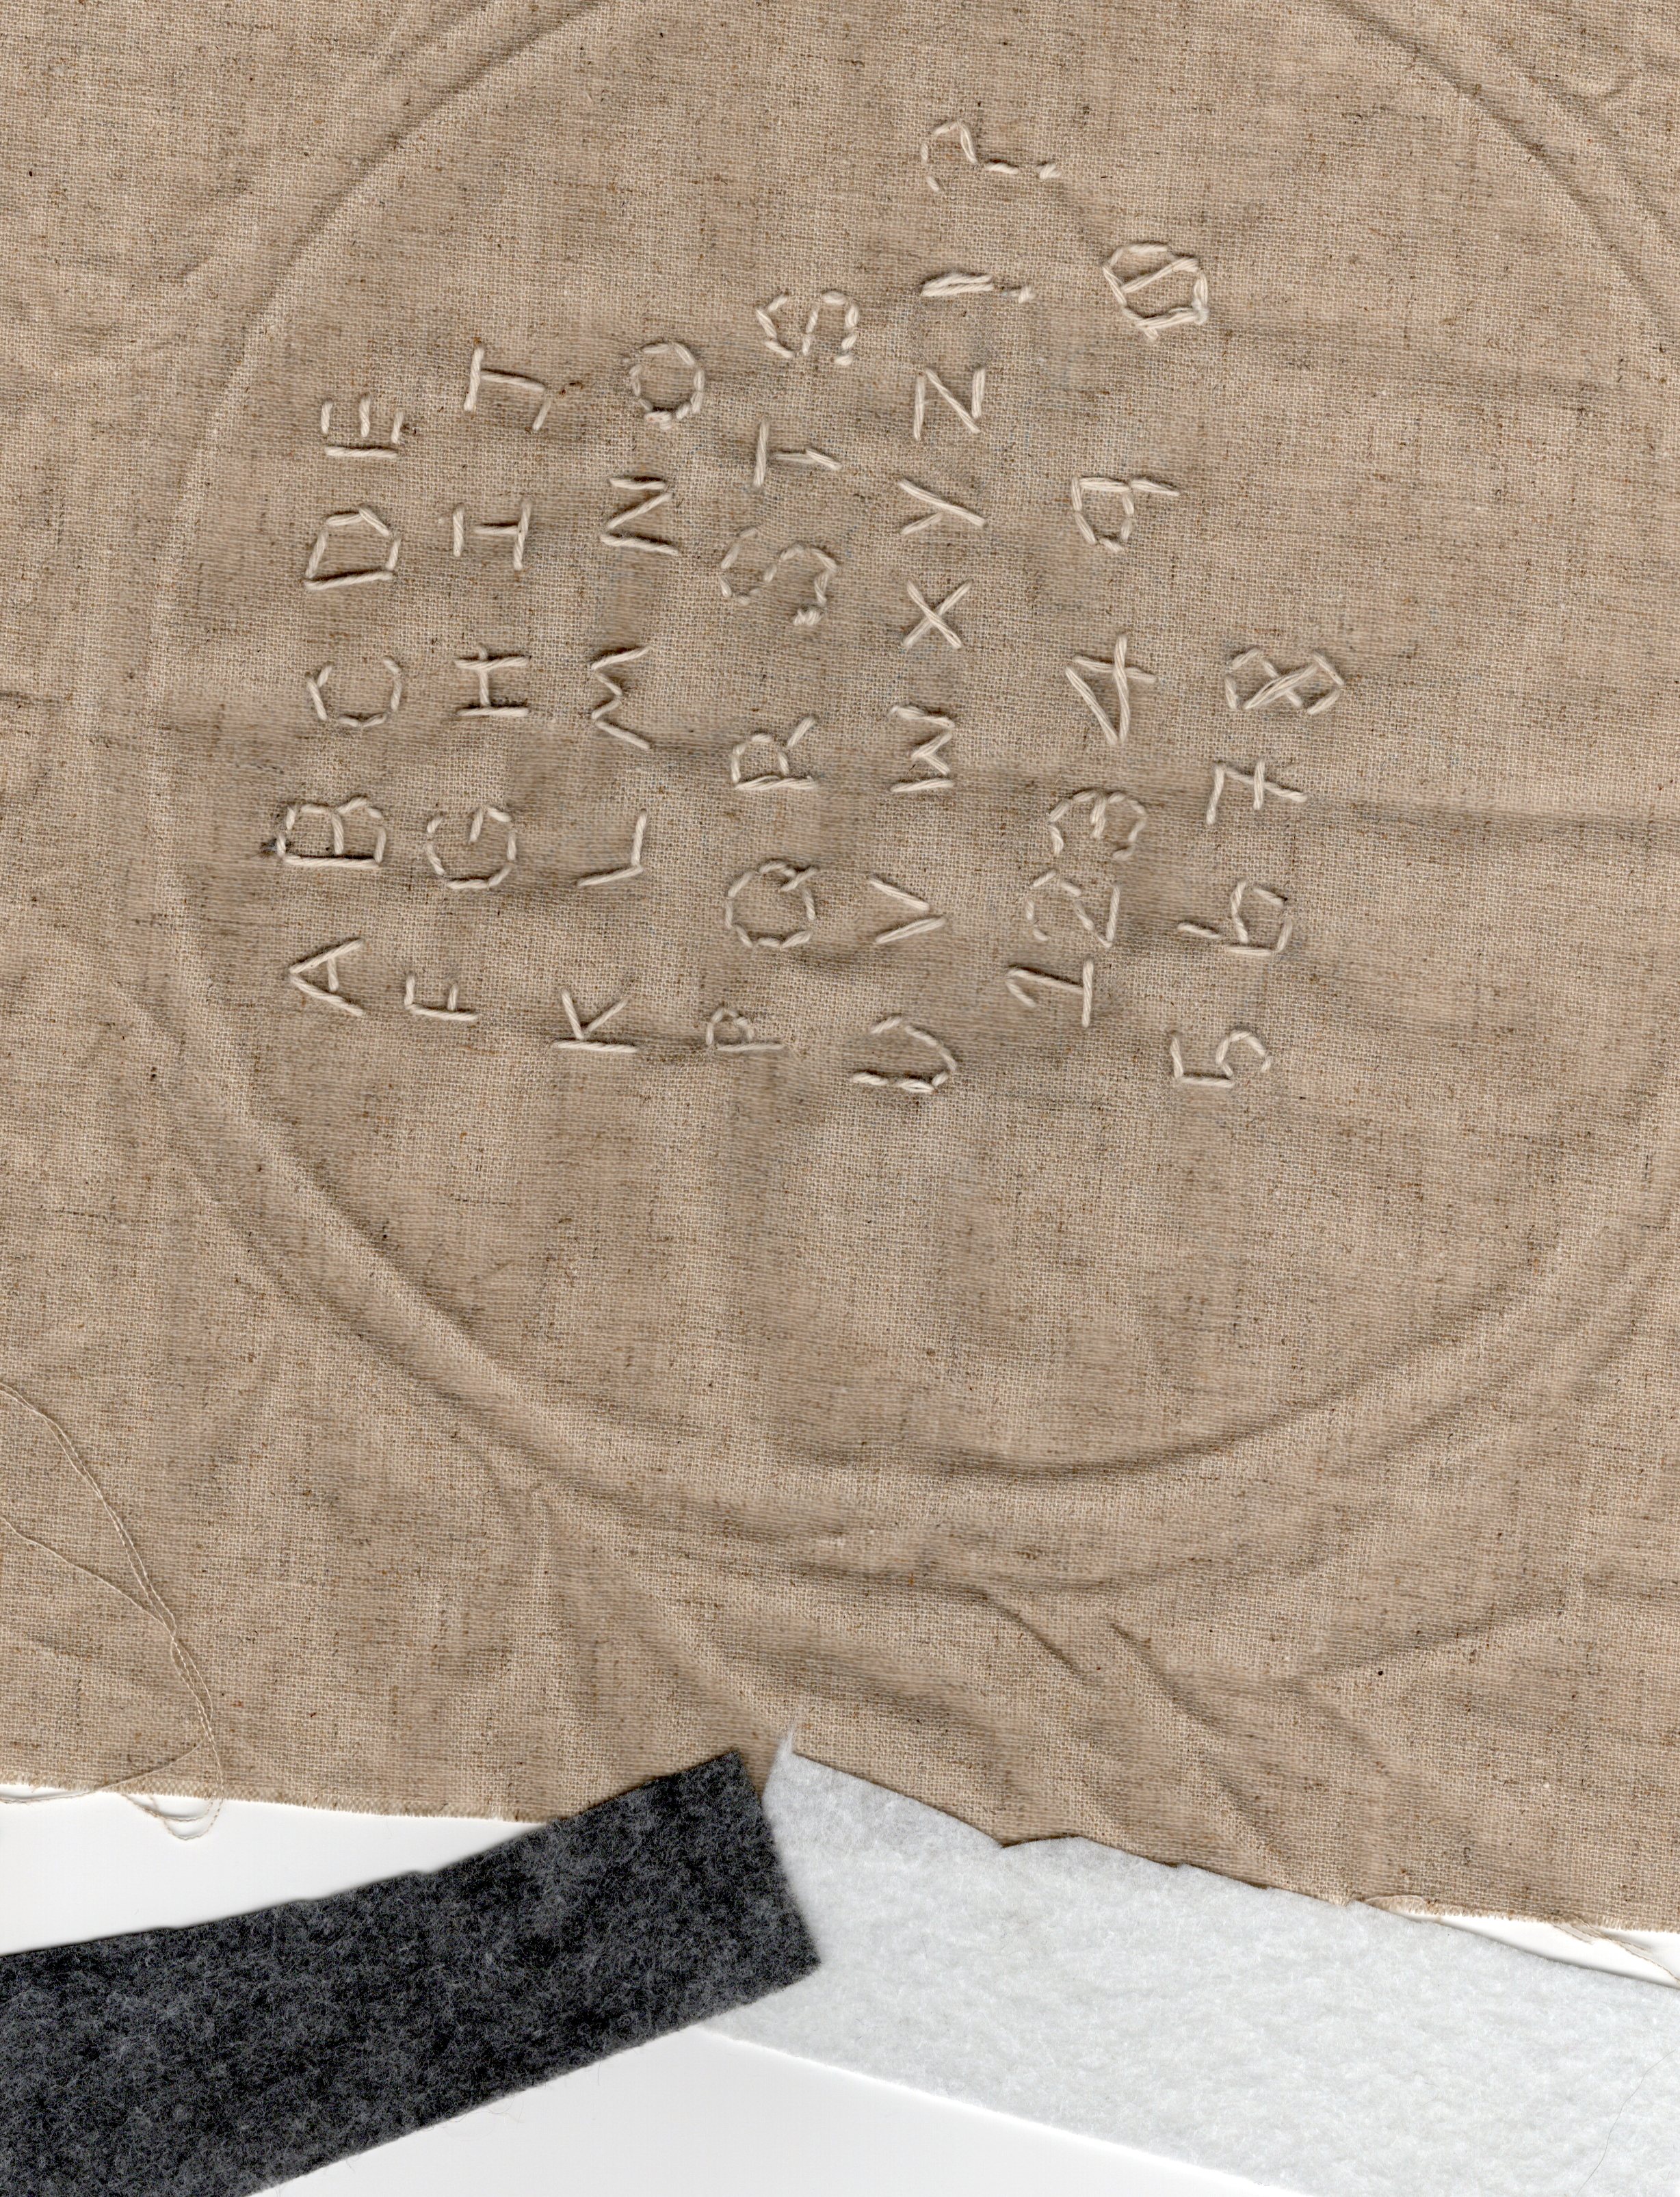 A B C D E
F G H I J
K L M N O
P Q R S T S
U V W X Y Z ! ?
1 2 3 4 9 0
5 6 7 8